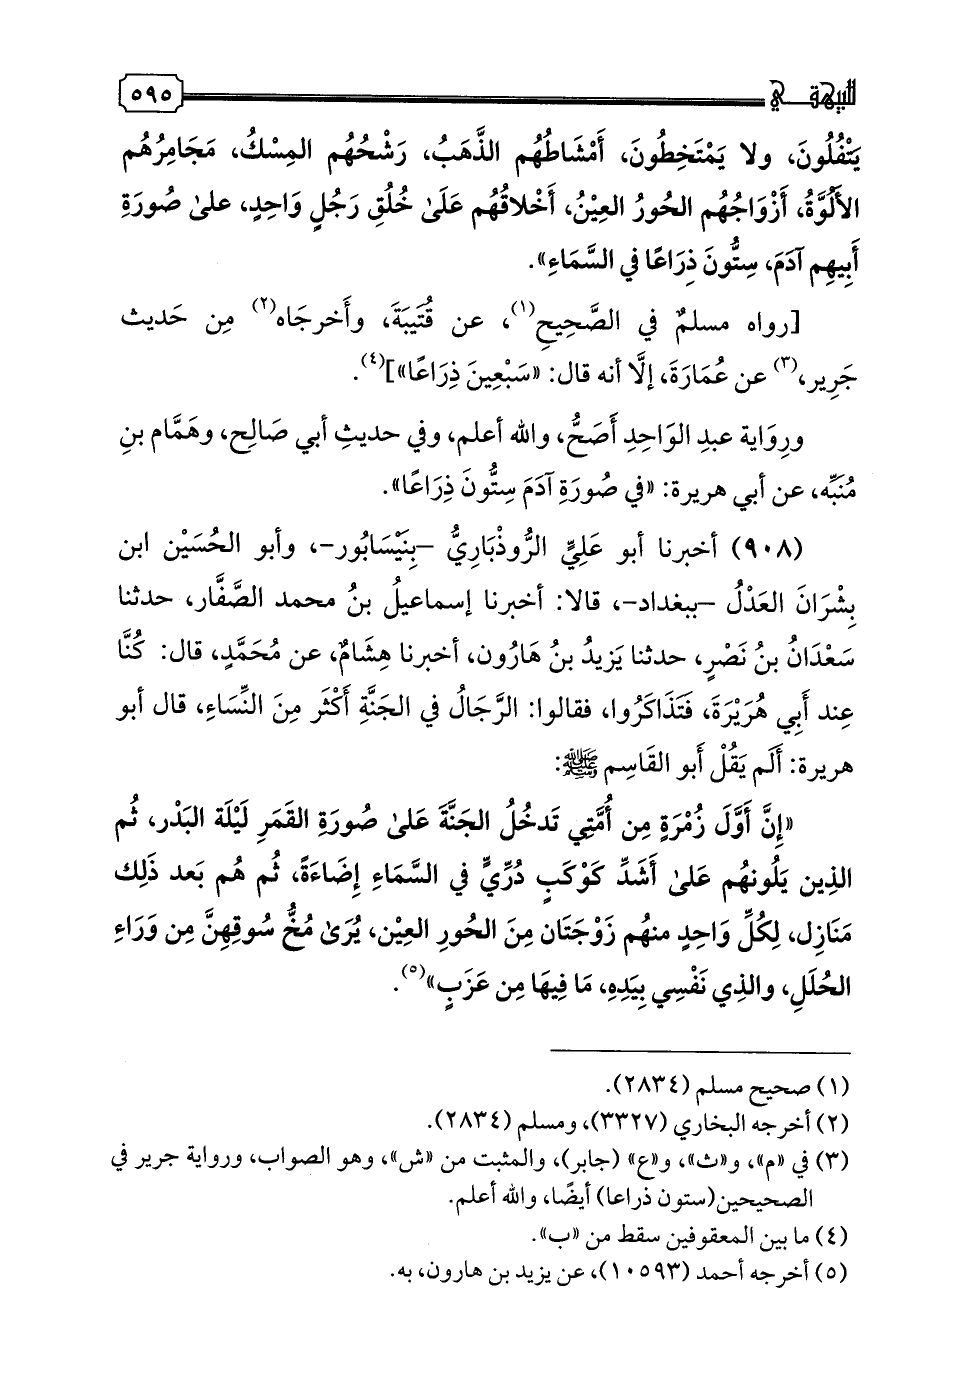 للبيهقي ٥٩٥
يَتْفُلُونَ، ولا يَمْتَخِطُونَ، أَمْشَاطُهُم الذَّهَبُ، رَشْحُهُم المِسْكُ، مَجَامِرُهُم
الأَلُوَّةُ، أَزْوَاجُهُم الحُورُ العِيْنُ، أَخْلاقُهُم عَلَىٰ خُلُقِ رَجُلٍ وَاحِدٍ، علىٰ صُورَةِ
أَبِيهِم آدَمَ، سِتُّونَ ذِرَاعًا في السَّمَاءِ».
[رواه مسلمٌ في الصَّحِيحِ(١)، عن قُتَيبَةَ، وأَخرجَاه(٢) مِن حَديث
جَرِير،(٣) عن عُمَارَةَ، إلَّا أنه قال: «سَبْعِينَ ذِرَاعًا»](٤).
ورِوَاية عبدِ الوَاحِدِ أَصَحُّ، والله أعلم، وفي حديثِ أبي صَالِح، وهَمَّام بنِ
مُنَبِّه، عن أبي هريرة: «في صُورَةِ آدَمَ سِتُّونَ ذِرَاعًا».
(٩٠٨) أخبرنا أبو عَلِيٍّ الرُّوذْبَارِيُّ –بِنَيْسَابُور–، وأبو الحُسَيْن ابن
بِشْرَانَ العَدْلُ –ببغداد–، قالا: أخبرنا إسماعيلُ بنُ محمد الصَّفَّار، حدثنا
سَعْدَانُ بنُ نَصْرٍ، حدثنا يَزِيدُ بنُ هَارُون، أخبرنا هِشَامٌ، عن مُحَمَّدٍ، قال: كُنَّا
عِند أَبِي هُرَيْرَةَ، فَتَذَاكَرُوا، فقالوا: الرَّجَالُ في الجَنَّةِ أَكْثَر مِنَ النِّسَاءِ، قال أبو
هريرة: أَلَم يَقُلْ أَبو القَاسِم ﷺ:
«إِنَّ أَوَّلَ زُمْرَةٍ مِن أُمَّتِي تَدخُلُ الجَنَّةَ عَلىٰ صُورَةِ القَمَرِ لَيْلَةَ البَدْر، ثُم
الذِين يَلُونهُم عَلىٰ أَشَدِّ كَوْكَبٍ دُرِّيٍّ في السَّمَاءِ إِضَاءَةً، ثُم هُم بَعد ذَلِك
مَنَازِل، لِكُلِّ وَاحِدٍ منهُم زَوْجَتَان مِنَ الحُورِ العِيْن، يُرَىٰ مُخُّ سُوقِهِنَّ مِن وَرَاءِ
الحُلَلِ، والذِي نَفْسِي بِيَدِهِ، مَا فِيهَا مِن عَزَبٍ»(٥).
(١) صحيح مسلم (٢٨٣٤).
(٢) أخرجه البخاري (٣٣٢٧)، ومسلم (٢٨٣٤).
(٣) في «م»، و«ث»، و«ع» (جابر)، والمثبت من «ش»، وهو الصواب، ورواية جرير في
الصحيحين(ستون ذراعا) أيضًا، والله أعلم.
(٤) ما بين المعقوفين سقط من «ب».
(٥) أخرجه أحمد (١٠٥٩٣)، عن يزيد بن هارون، به.